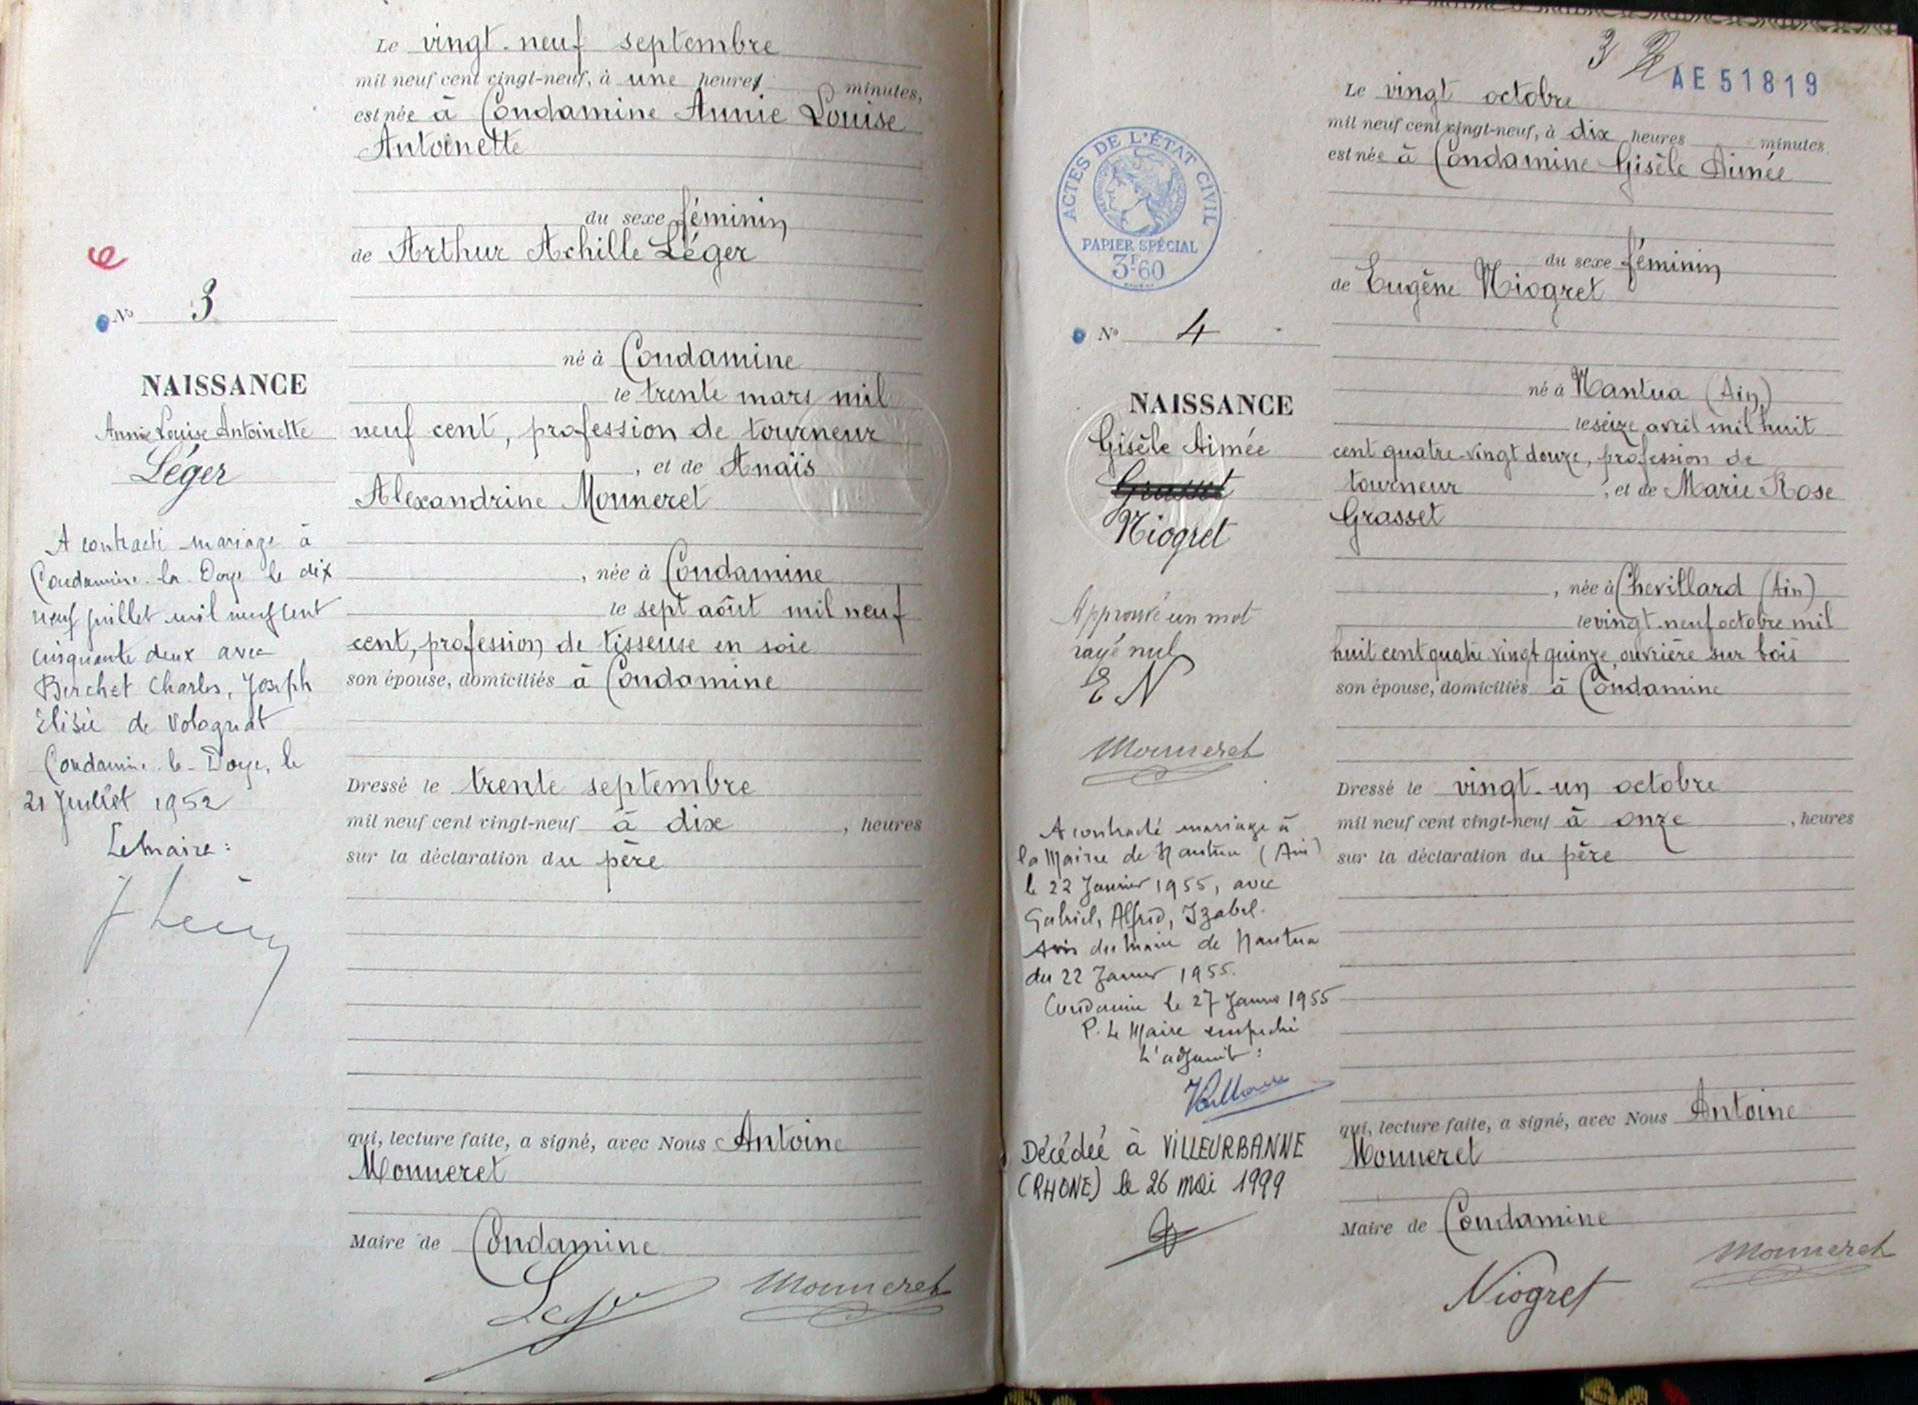 Le vingt-neuf septembre
mil neuf cent vingt-neuf, à une heures minutes,
est née à Condamine Annie Louise
Antoinette
du sexe féminin
de Arthur Achille Léger
N° 3
né à Condamine
NAISSANCE
le trente mars mil
Annie Louise Antoinette
neuf cent, profession de tourneur
Léger
, et de Anaïs
Alexandrine Monneret
A contracté mariage à
Condamine la Doye le dix
neuf juillet mil neuf cent
cinquante deux avec
Berchet Charles, Joseph
Elisée de Volognat
Condamine-la-Doye, le
21 Juillet 1952
Le Maire :
, née à Condamine
le sept août mil neuf
cent, profession de tisseuse en soie
son épouse, domiciliés à Condamine
Dressé le trente septembre
mil neuf cent vingt-neuf à dix , heures
sur la déclaration du père
qui, lecture faite, a signé, avec Nous Antoine
Monneret
Maire de Condamine
Monneret
3
AE 51819
Le vingt octobre
mil neuf cent vingt-neuf, à dix heures minutes,
est née à Condamine Gisèle Aimée
ACTES DE L'ÉTAT CIVIL
PAPIER SPÉCIAL
3F.60
du sexe féminin
de Eugène Niogret
N° 4
né à Nantua (Ain)
NAISSANCE
le seize avril mil huit
Gisèle Aimée
cent quatre-vingt douze, profession de
Grasset
tourneur , et de Marie Rose
Niogret
Grasset
Approuvé un mot
rayé nul
E N
Monneret
, née à Chevillard (Ain)
le vingt-neuf octobre mil
huit cent quatre vingt quinze, ouvrière sur bois
son épouse, domiciliés à Condamine
Dressé le vingt-un octobre
mil neuf cent vingt-neuf à onze , heures
sur la déclaration du père
A contracté mariage à
la Mairie de Nantua (Ain)
le 22 Janvier 1955, avec
Gabriel, Alfred, Izabel.
Avis du Maire de Nantua
du 22 Janvier 1955.
Condamine le 27 Janvier 1955
P. Le Maire empêché
L'adjoint :
Décédée à VILLEURBANNE
(RHONE) le 26 mai 1999
qui, lecture faite, a signé, avec Nous Antoine
Monneret
Maire de Condamine
Niogret
Monneret